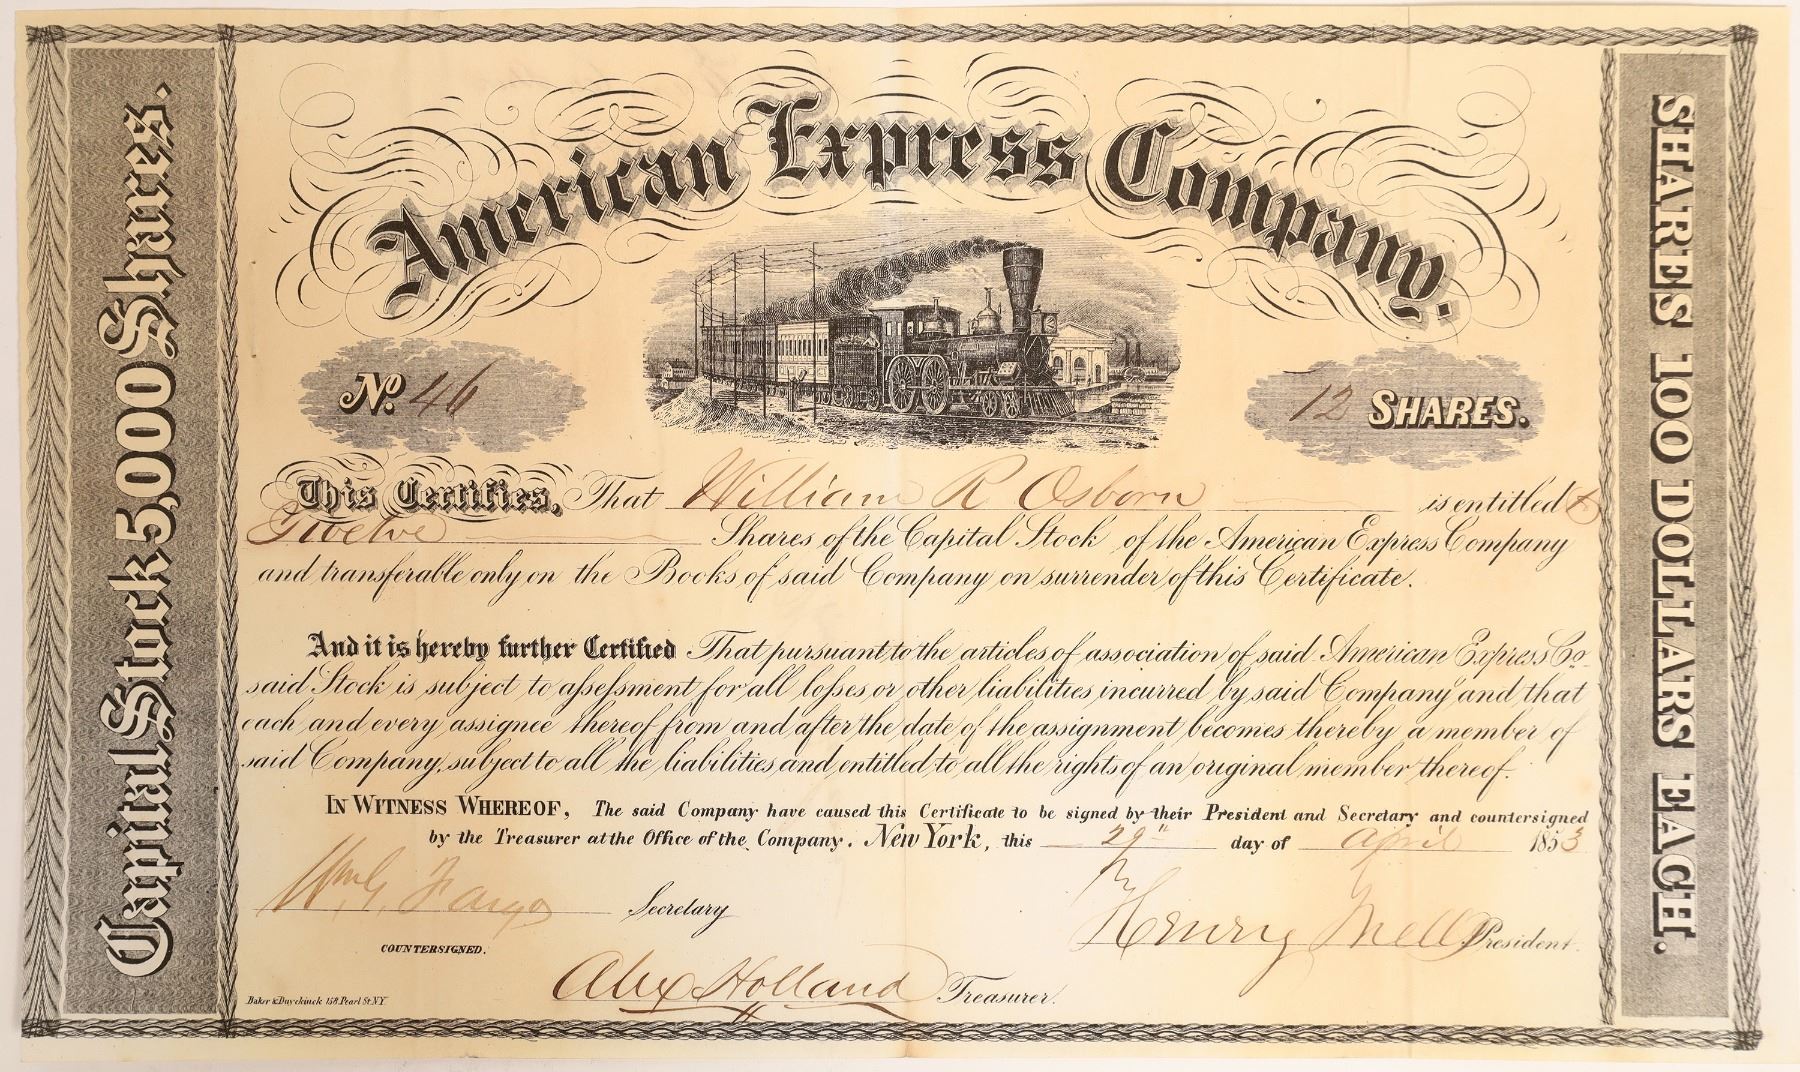 American Express Company.
Capital Stock 5,000 Shares.
SHARES 100 DOLLARS EACH.
No. 46
12 SHARES.
This Certifies, That William R Osborn is entitled to
Twelve Shares of the Capital Stock of the American Express Company
and transferable only on the Books of said Company on surrender of this Certificate.
And it is hereby further Certified That pursuant to the articles of association of said American Express Co.
said Stock is subject to assessment for all losses or other liabilities incurred by said Company and that
each and every assignee thereof from and after the date of the assignment becomes thereby a member of
said Company, subject to all the liabilities and entitled to all the rights of an original member thereof.
IN WITNESS WHEREOF, The said Company have caused this Certificate to be signed by their President and Secretary and countersigned
by the Treasurer at the Office of the Company. New York, this 29th day of April 1853
Wm G. Fargo Secretary
Henry Wells President.
COUNTERSIGNED.
Alex Holland Treasurer.
Baker & Duyckinck 158 Pearl St. N.Y.